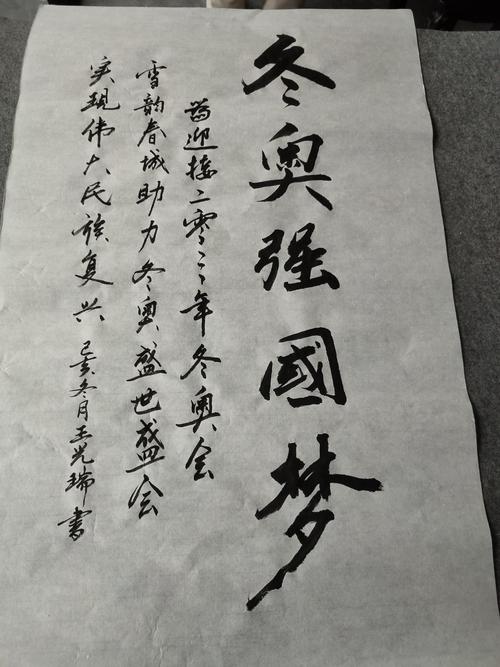 冬奥强國梦
为迎接二零二二年冬奥会
雪韵春城助力冬奥盛世盛会
实现伟大民族复兴
己亥冬月王光瑞书